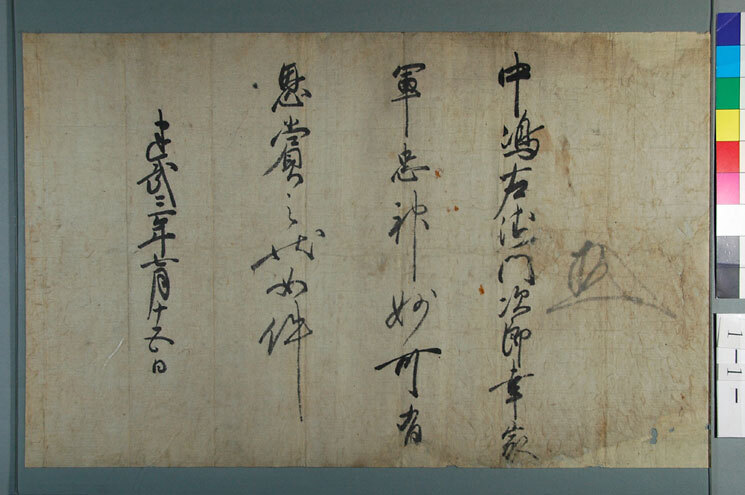 中嶋右衛門次郎幸家
軍忠神妙可有
恩賞之状如件
建武三年七月十五日
1-1-